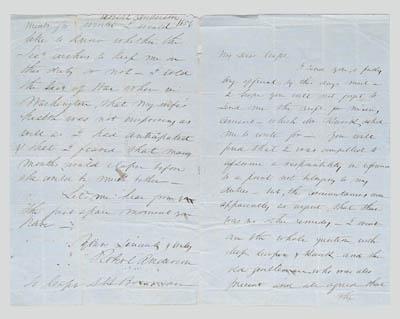 My dear Cooper
I send you a
by this days mail -
I hope you will not forget to
send me the
cement - which Mr.
me to write for - You will
find that I was compelled to
assume a responsibility in
to a point not belonging to my
duties - but, the circumstances were
apparently so urgent that there
was no other remedy - I went
over the whole question with
and the
old gentleman who was also
present and all agreed that
the
Robert Anderson
1856
I would
like to know whether the
Secy wishes to keep me on
this duty or not - I told
the Secy of War when in
Washington that my wife's
health was not improving as
well as I had anticipated
& that I feared that many
months would elapse before
she would be much better -
Let me hear from you
the first spare moment you
have -
Yours Sincerely & truly
Robert Anderson